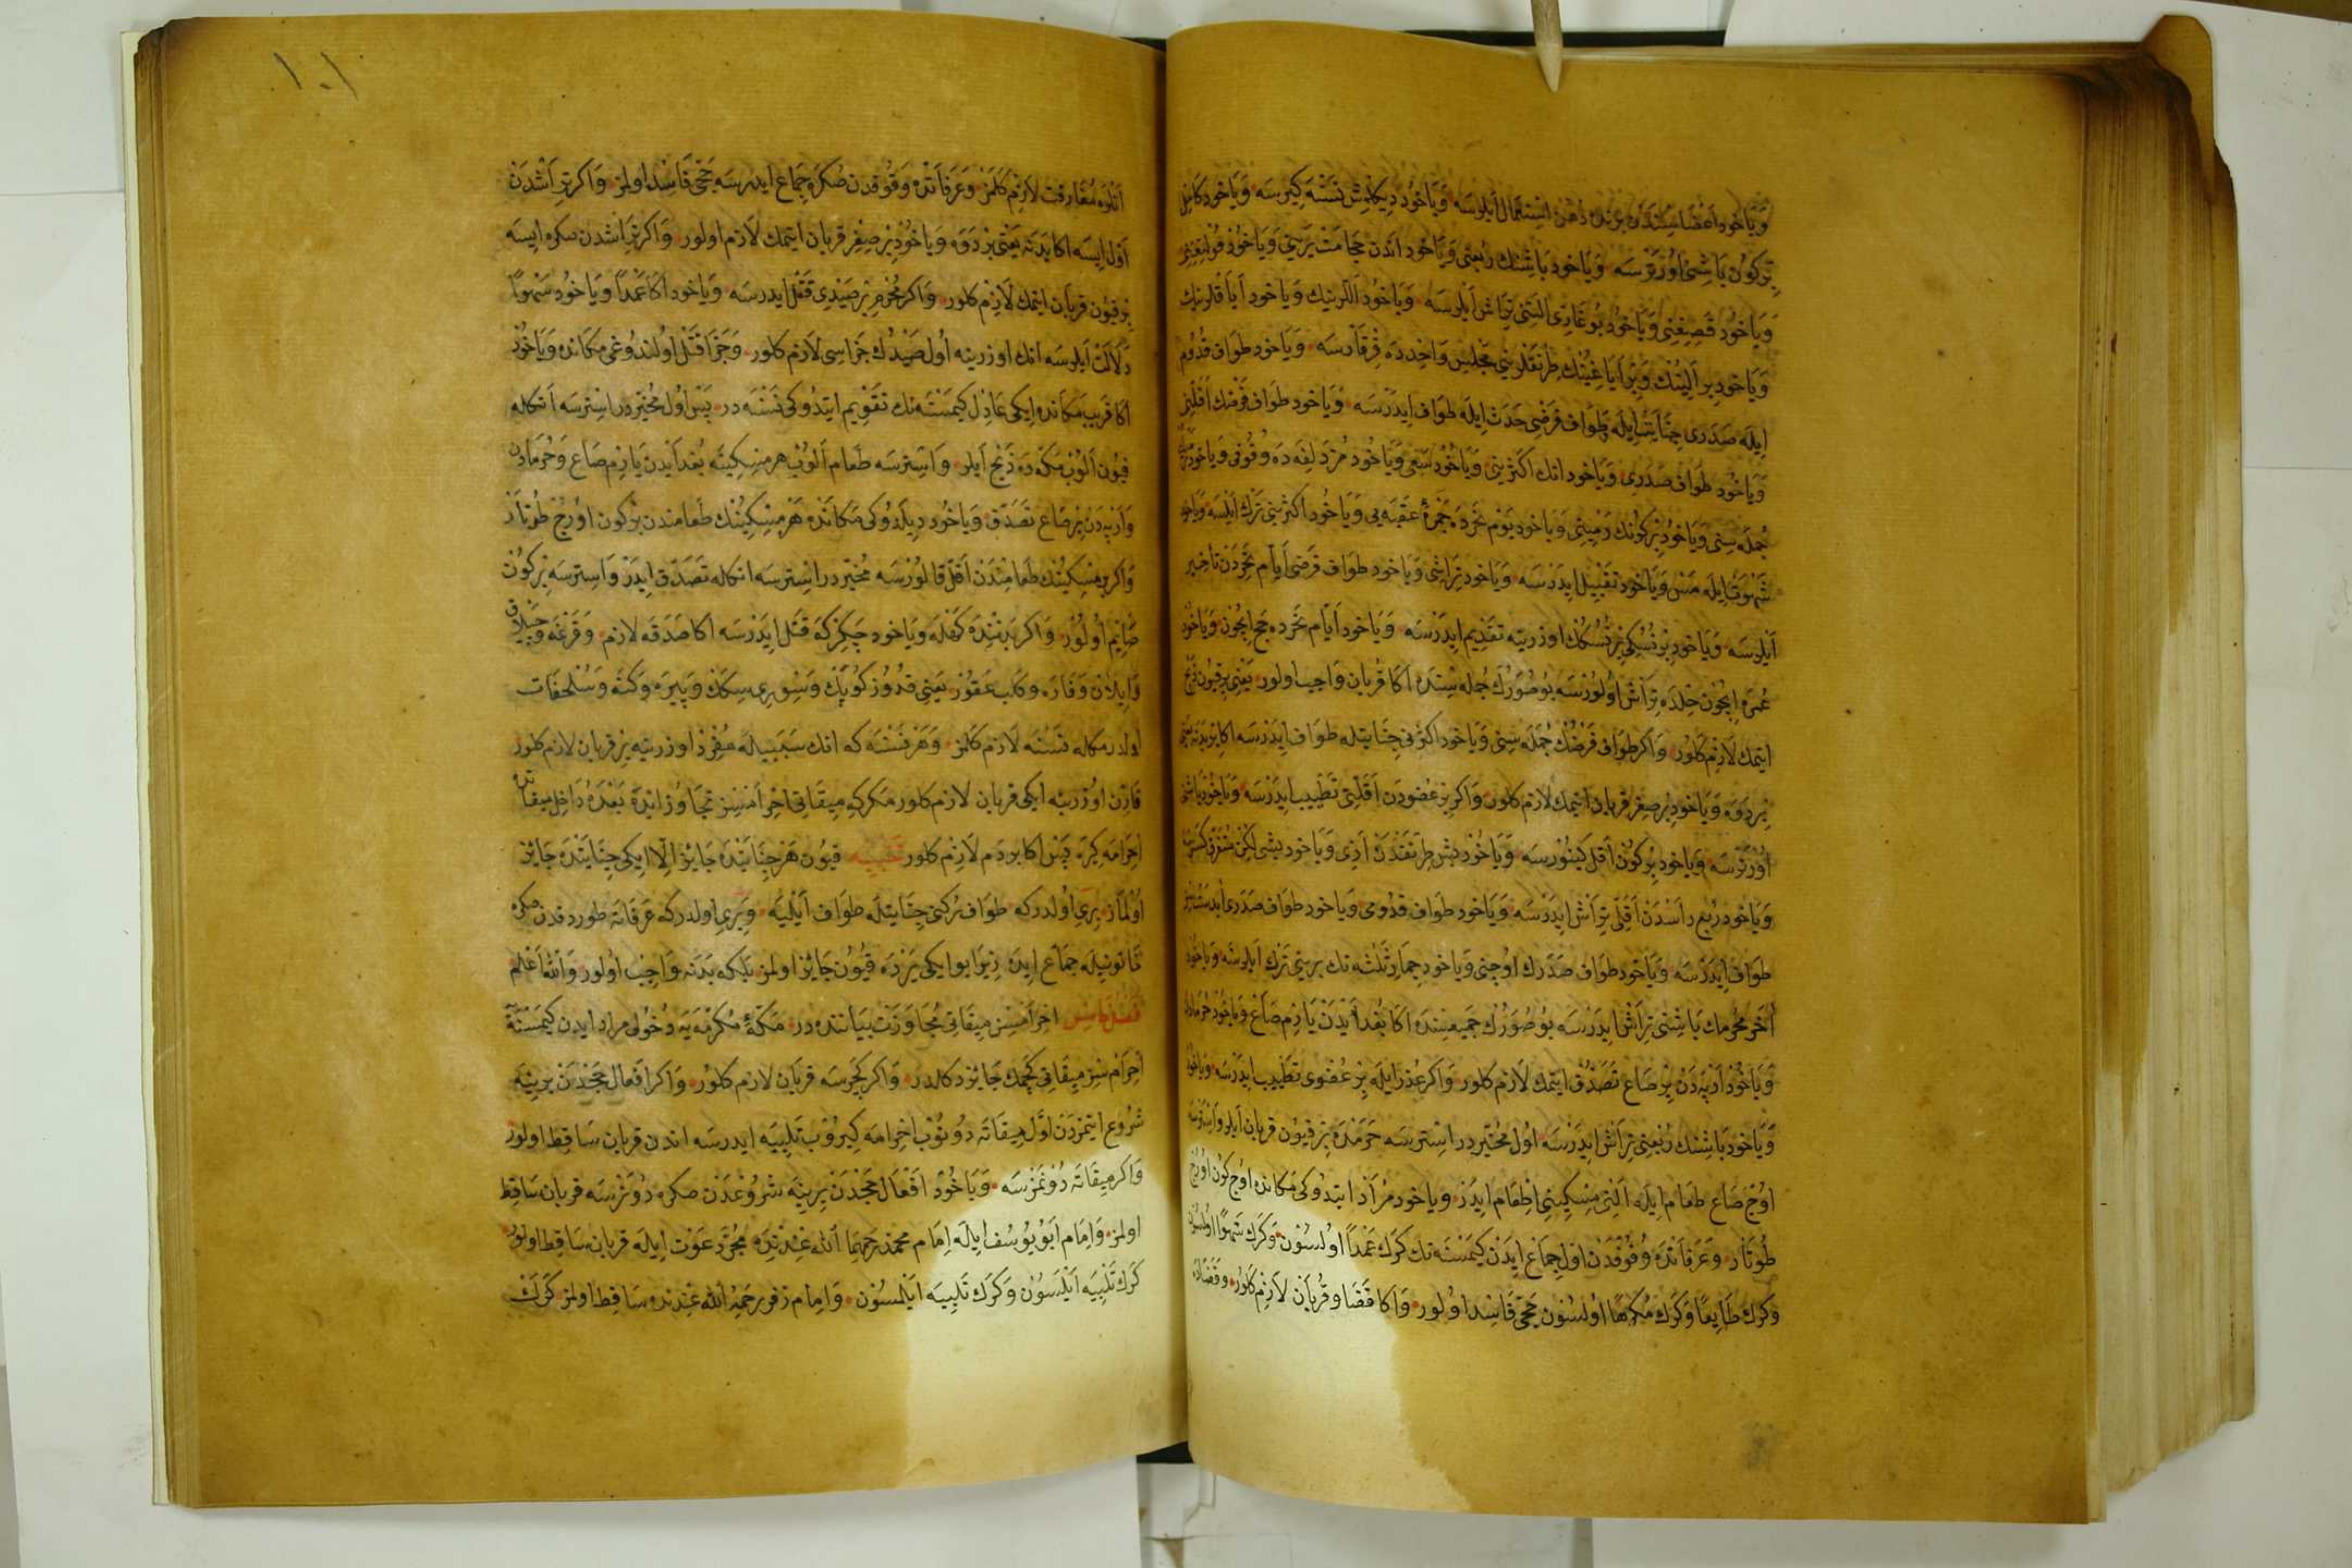 وَيَاخود اَعْضَاسِنْدَن بِرِنده دُهْن اِسْتِعْمَال اَيلرسه وَيَاخُود دِيكلمِش نَسْنَه كِيَرسه وَيَاخود كامِل
بِركُون بَاشِنى اُورْترسَه وَيَاخود بَاشِنك رُبعنى وَيَاخود اندن حجامَت يَرينى وَيَاخُود قُولتغنى
وَيَاخُود قَصِيغنى وَيَاخُود بُوغَازى التنى تِراش اَيلرسه وَيَاخُود اَللرينك وَيَاخود اَيَاقلرينك
وَيَاخود بِر اَلِينك وَبِر اَيَاغِينك طِرنقلرينى مَجْلِس وَاحِدده قِرقَارسَه وَيَاخود طَوَاف قُدُوم
ايله صَدَرى جِنَايَت ايله وَطَوَاف فَرضى حَدَث ايله طَوَاف ايدَرسَه وَيَاخود طَوَاف فَرضك اَقَلِّن
وَيَاخُود طَوَاف صَدَرى وَيَاخود انك اكثرينى وَيَاخُود سَعى وَيَاخُود مُزدَلِفَه ده وُقوفى وَياخود
جُمله سِنى وَيَاخُود بِركُونك رَميِنى وَيَاخود يَوْم نَحرده جَمرهٔ عَقَبه يى وَيَاخُود اكثرينى تَرك اَيلسه وَيَاخود
شَهْوَت ايله مَس وَيَاخود تَقبيل ايدَرسَه وَيَاخود تِرَاشى وَيَاخود طَوَاف فَرضى اَيَّام نَحردَن تَاخير
اَيلرسَه وَيَاخود بِر نُسُكى بِر نُسُكك اوزرينه تَقدِيم ايدَرسَه وَيَاخود اَيَّام نَحرده حج اِيچُون وَيَاخود
عُمره اِيچُون حِلده تِرَاش اُولُورسَه بُو صُوَرك جُمله سِنده اكا قُربان وَاجِب اولور يَعنى بِر قيُون ذَبح
ايتمك لَازِم كَلور وَاكر طَوَاف فَرضك جُمله سِنى وَيَاخود اكثرنى جِنَايتله طَوَاف ايدَرسَه اكا بَدنه يَعنى
بِر دَوَه وَيَاخود بِر صِغر قربان ايتمك لازم كلور وَاكر بِر عُضودَن اَقَلّنى تَطييب ايدَرسَه وَيَاخود بَاشنى
اُورترسَه وَيَاخود بِركُون اَقَل كِينورسَه وَيَاخُود بَش طِرنَقدَن اَزى وَيَاخود بَشى لكن مُتَفَرّق كَسَرسه
وَيَاخود رُبع رَاسدَن اَقَلّى تِرَاش ايدَرسَه وَيَاخود طَوَاف قدُومى وَيَاخود طَوَاف صَدَرى
طَوَاف ايدَرسَه وَيَاخود طَوَاف صَدَرك اُوچنى وَيَاخود جِمَار ثَلثه نك بِرينى تَرك اَيلرسَه وَيَاخود
آخَر مُحرِمك بَاشِنى تِرَاش ايدَرسَه بُو صُوَرك جَميعسِنده اكا بُغدَايدَن يَارِم صَاع وَيَاخُود خُرمَادَن
وَيَاخُود اَرپَه دَن بِر صَاع تَصَدُّق ايتمك لَازم كلور وَاكر عُذر ايله بِر عُضوى تَطييب ايدَرسَه وَيَاخود
وَيَاخود بَاشِنك رُبعنى تِرَاش ايدَرسَه اُول مُخَيَّردر اِسترسَه حَرَمده بِر قيُون قربان اَيلر وَاِسترسَه
اُوچ صَاع طعَام ايله اَلتى مِسكِينى اِطعَام ايدَر وَيَاخود مُرَاد ايتدُوكى مَكانده اوچ كون اورُج
طُوتَار وَعَرَفَاتده وُقُوفدَن اوّل جِمَاع ايدن كِيمسَنه نك كَرَك عَمداً اولسُون وَكَرَك سَهواً اولسُون
وَكَرَك طَايِعًا وَكَرَك مُكرَهًا اولسُون حَجّى فَاسِد اولور وَاكا قَضَا و قُربَان لَازم كلور وقَضَاده
١٠١
اَنلَره مُفَارقت لَازِم كَلمز وَعَرَفَاتده وقُوفدن صكره جِمَاع ايدرسه حَجّى فَاسد اولمز وَاكر تِرَاشدَن
اَوّل ايسَه اكا بَدَنه يَعنى بِر دَوَه وَيَاخُود بِر صِغِر قربان ايتمك لَازم اولور وَاكر تِرَاشدن صكره ايسَه
بِر قيُون قربَان ايتمك لَازم كلور وَاكر مُحرِم بِر صَيدى قَتل ايدرسَه وَيَاخود اكا عَمداً وَيَاخُود سَهواً
دَلَالت اَيلرسَه انك اوزرينه اُول صَيدك جَزَاسى لَازم كلور وَجَزَا قَتل اولندوغى مكانده وَيَاخود
اكا قَريب مكانده ايكى عَادِل كِيمسَنه نك تَقوِيم ايتدُوكى نَسنَه در پَس اُول مُخَيَّردر اِسترسَه انكله
قيُون اَلُوب مَكّه ده ذَبح اَيلر وَاِسترسَه طعَام اَلوب هر مِسكِينه بُغدَايدن يَارِم صَاع وَخُرمَادن
وَارپَه دَن بِر صَاع تَصَدّق وَيَاخُود دِيلَدُوكى مَكانده هَر مِسكِينك طعَامندن بِركون اورُج طُوتَار
وَاكر بِر مِسكِينك طعَامِندَن اَقَل قَالُورسَه مُخَيَّردر اِسترسَه انكله تَصَدّق ايدَر وَاِسترسَه بِركُون
صَايم اُولُور وَاكر بَدَنِنده كهله وَيَاخود چَكِركه قَتل ايدَرسَه اكا صَدَقه لازم وَقَرغه وَچَيلاق
وَايلان وَفَاره وكلب عَقور يَعنى قُدُوز كُوپَك وَسورى سِكَك وَپِيره وَكَنه وَسُلحفَات
اولدرمكله نَسنَه لَازم كَلمز وَهَر نَسنه كه انك سَبَبيله مُفرِد اوزرينه بِر قربان لازم كلور
قَارِن اوزرينه ايكى قربان لازم كلور مَكركه مِيقَاتى احرَامسِز تجَاوُز ايدَه بَعده دَاخل ميقاتده
اِحرَامه كِره پَس اكا بر دَم لَازم كلور تنبيه قيُون هَر جِنَايتده جَايز اِلّا ايكى جِنَايتده جَايز
اَولمَاز بِرى اُولدركه طَوَاف رُكنى جِنَايتله طَوَاف اَيليَه وَبِرى اولدركه عَرَفَاته طورد قدن صكره
خَاتونيله جِمَاع ايده زِيرَا بو ايكى يَرده قيُون جَايز اولمز بَلكه بَدَنه وَاجِب اولور وَاللّٰه اَعلَم
فصل خامس احرَامسِز مِيقَاتى مُجَاوَزَت بيَانندَه در مَكّهٔ مُكرّمَه يَه دُخُولى مراد ايدن كِيمسَنه
احرَامسِز مِيقَاتى كچمك جَايز دكلدر وَاكر كچرسَه قربَان لازم كلور وَاكر افعال حَجدَن بِرينه
شُروع ايتمزدَن اَوّل مِيقَاته دونوب احرامه كِيرُوب تَلبِيَه ايدرسَه اندن قربان سَاقِط اولور
وَاكر مِيقَاته دُونمَزسَه وَيَاخُود اَفعَال حَجدن بِرينه شُروعدَن صكره دُونَرسَه قربان سَاقِط
اولمز وَاِمَام اَبُو يُوسُف ايله اِمَام محمد رَحِمَهُمَا اللّٰه عِندنده مُجَرَّد عَوْدت ايله قربان سَاقِط اولور
كَرَك تَلبِيَه اَيلسُون وَكَرَك تَلبِيَه اَيلمسُون وَاِمَام زفر رَحِمَهُ اللّٰه عِندنده سَاقِط اولمز كَرَك